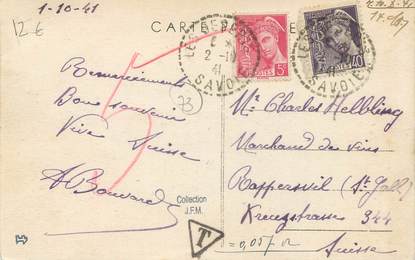 1-10-41
12€
CARTE
SAVOIE
POSTES
5c
POSTES
40
SAVOIE
73
Remerciements
Bons souvenirs
Vive Suisse
A Bouvard
Collection
J.F.M.
T
Mr Charles Helbling
Marchand de vins
Rappersvil (St. Gall)
Kreuzstrasse 344
Suisse